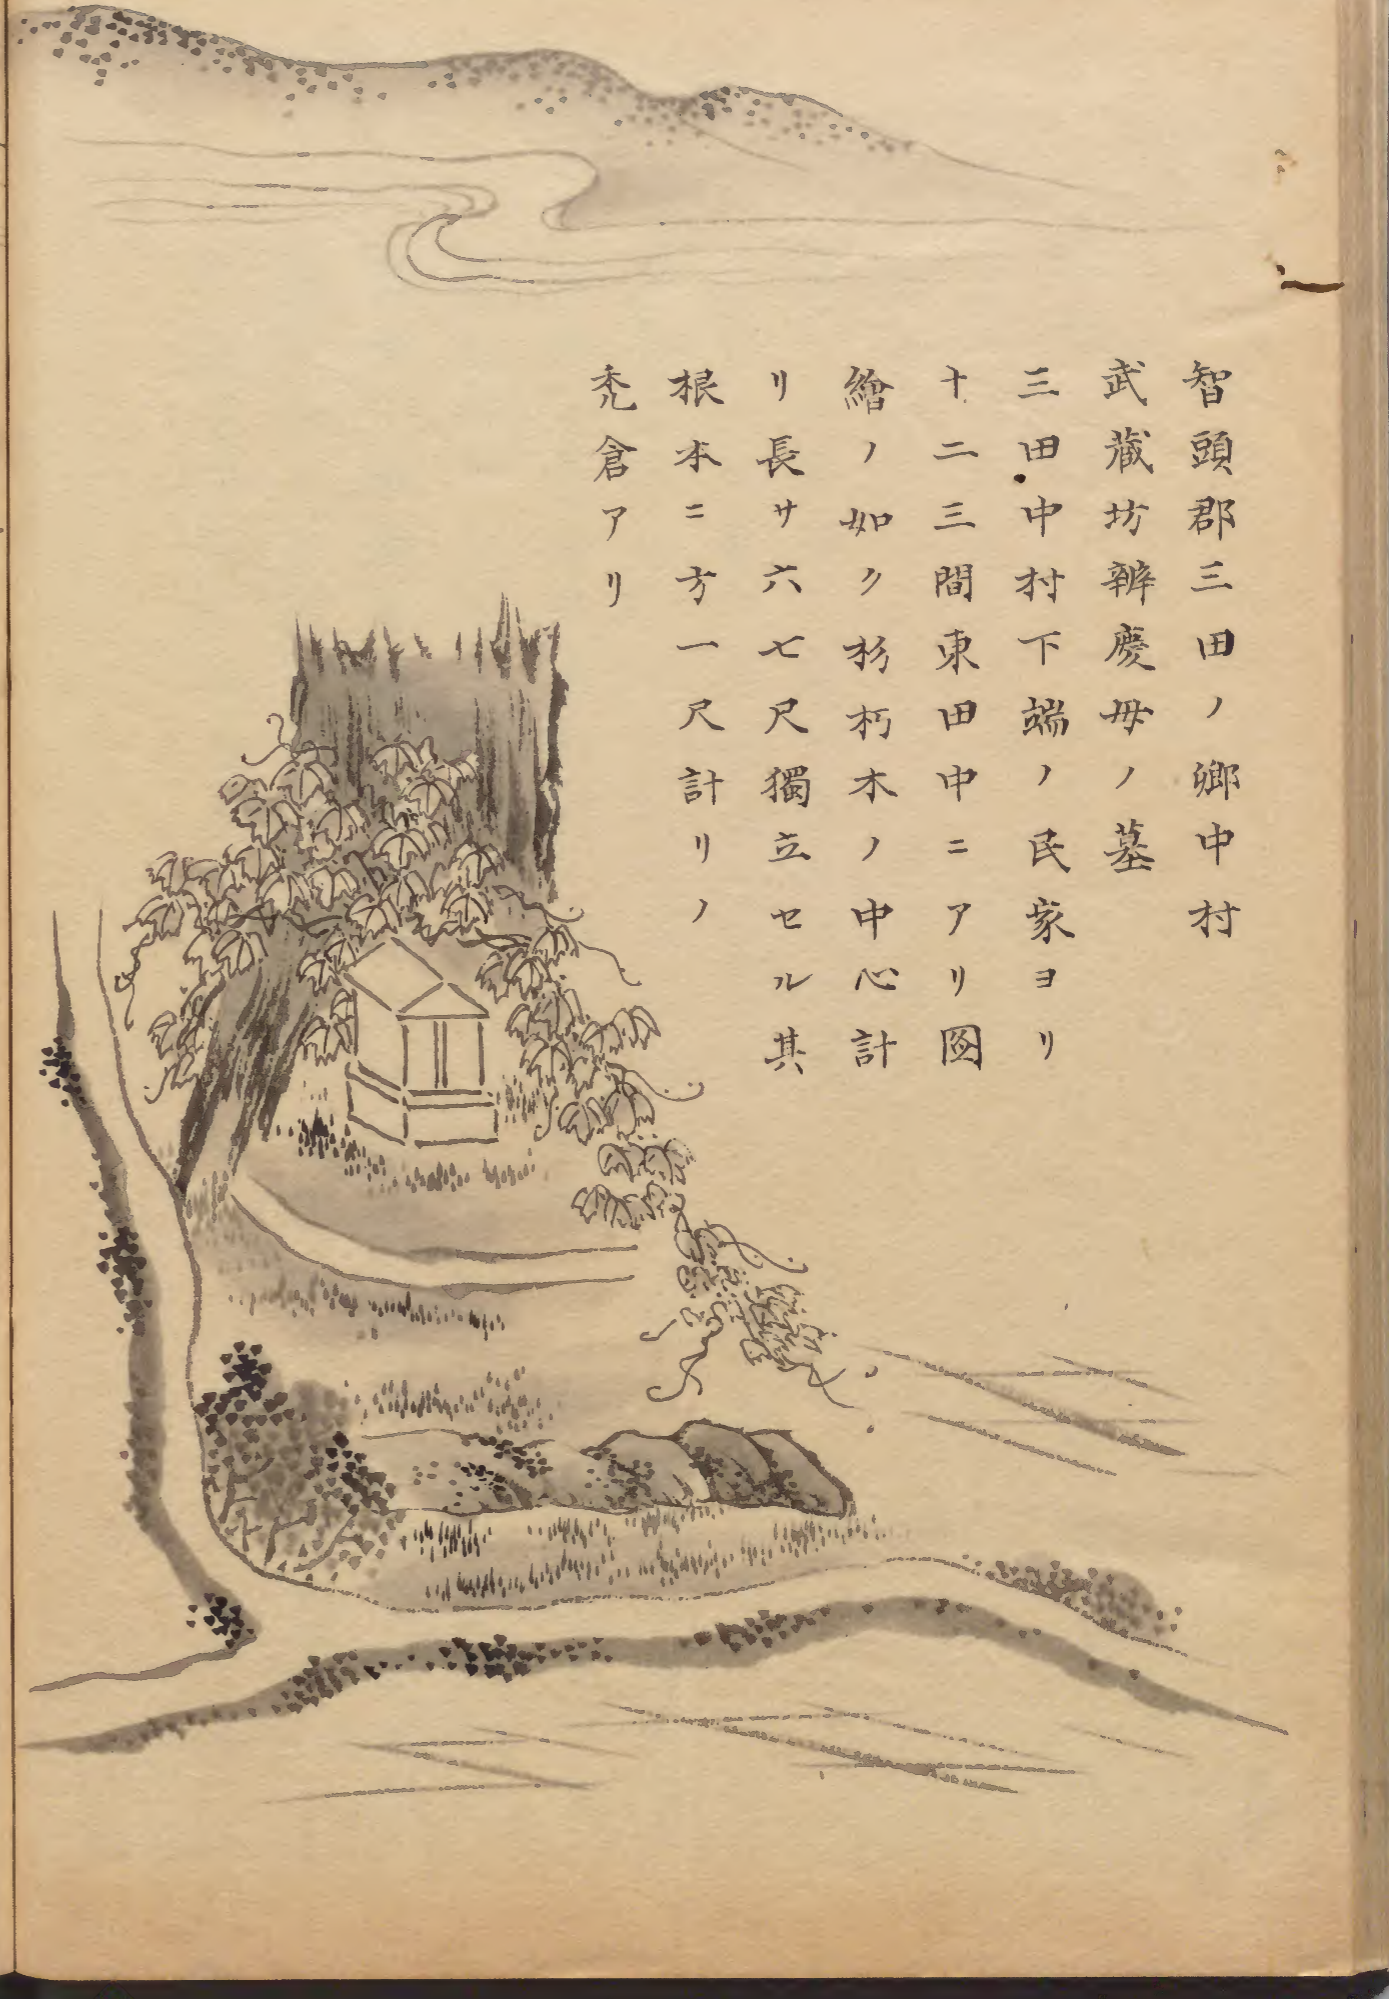 智頭郡三田ノ郷中村
武蔵坊辨慶母ノ墓
三田中村下端ノ民家ヨリ
十二三間東田中ニアリ図
繪ノ如ク杉朽木ノ中心計
リ長サ六七尺獨立セル其
根本ニ方一尺計リノ
禿倉アリ